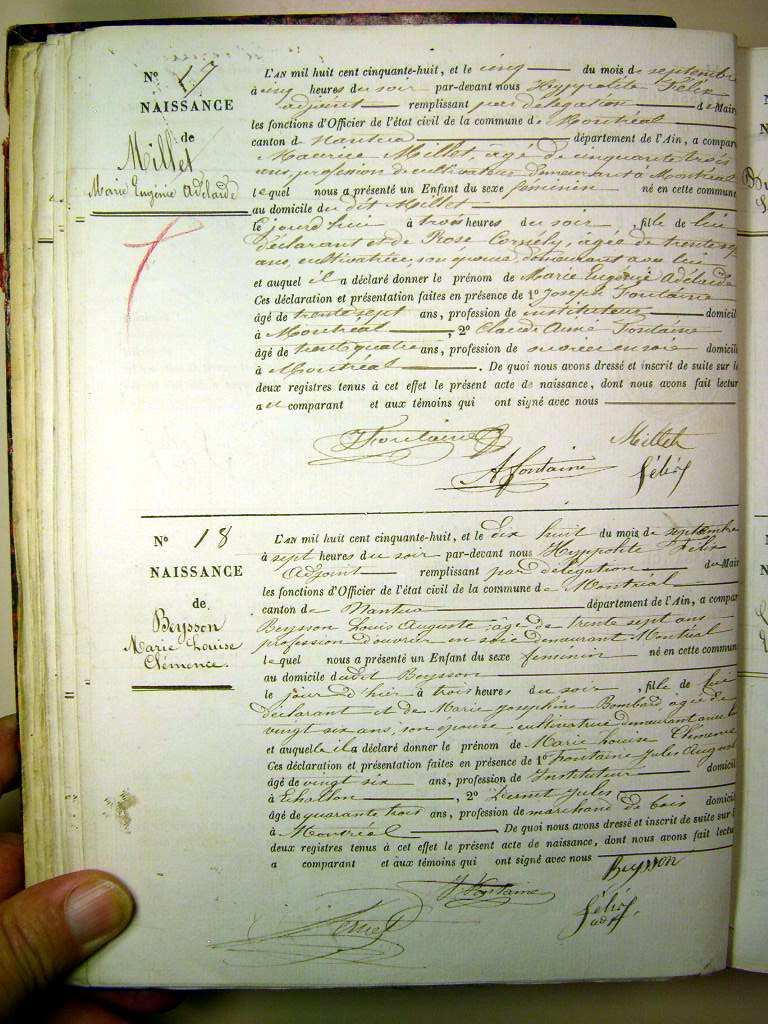 N° 17
NAISSANCE
de
Millet
Marie Eugénie Adélaïde
L'AN mil huit cent cinquante-huit, et le cinq du mois de septembre
à cinq heures du soir par-devant nous Hyppolite Félix
adjoint remplissant par délégation de Mair
les fonctions d'Officier de l'état civil de la commune de Montréal
canton de Nantua département de l'Ain, a compar
Maurice Millet, âgé de cinquante trois
ans, profession de cultivateur demeurant à Montréal
lequel nous a présenté un Enfant du sexe féminin né en cette commune
au domicile du dit Millet
le jourd'hui à trois heures du soir, fille de lui
déclarant et de Rose Cornély, âgée de trente sept
ans, cultivatrice, son épouse, demeurant avec lui
et auquel il a déclaré donner le prénom de Marie Eugénie Adélaïde
Ces déclaration et présentation faites en présence de 1° Joseph Fontaine
âgé de trente sept ans, profession de instituteur domicil
à Montréal, 2° Claude Aimé Fontaine
âgé de trente quatre ans, profession de ouvrier en soie domicil
à Montréal. De quoi nous avons dressé et inscrit de suite sur l
deux registres tenus à cet effet le présent acte de naissance, dont nous avons fait lectur
au comparant et aux témoins qui ont signé avec nous
J Fontaine Millet
A fontaine félix
N° 18
NAISSANCE
de
Beysson
Marie Louise
Clémence.
L'AN mil huit cent cinquante-huit, et le dix huit du mois de septembre
à sept heures du soir par-devant nous Hyppolite Félix
Adjoint remplissant par délégation du Mair
les fonctions d'Officier de l'état civil de la commune de Montréal
canton de Nantua département de l'Ain, a compar
Beysson Louis Auguste âgé de trente sept ans
profession d'ouvrier en soie demeurant Montréal
lequel nous a présenté un Enfant du sexe féminin né en cette commun
au domicile dudit Beysson
le jour d'hier à trois heures du soir, fille de lui
déclarant et de Marie Josephine Bombard agée de
vingt six ans, son épouse, cultivatrice demeurant avec l
et auquelle il a déclaré donner le prénom de Marie Louise Clémence
Ces déclaration et présentation faites en présence de 1° Fontaine Jules August
âgé de vingt six ans, profession de Instituteur domicil
à Echallon, 2° Jules
âgé de quarante trois ans, profession de marchand de bois domicil
à Montréal. De quoi nous avons dressé et inscrit de suite sur l
deux registres tenus à cet effet le présent acte de naissance, dont nous avons fait lectu
a comparant et aux témoins qui ont signé avec nous Beysson
J Fontaine
félix
adj